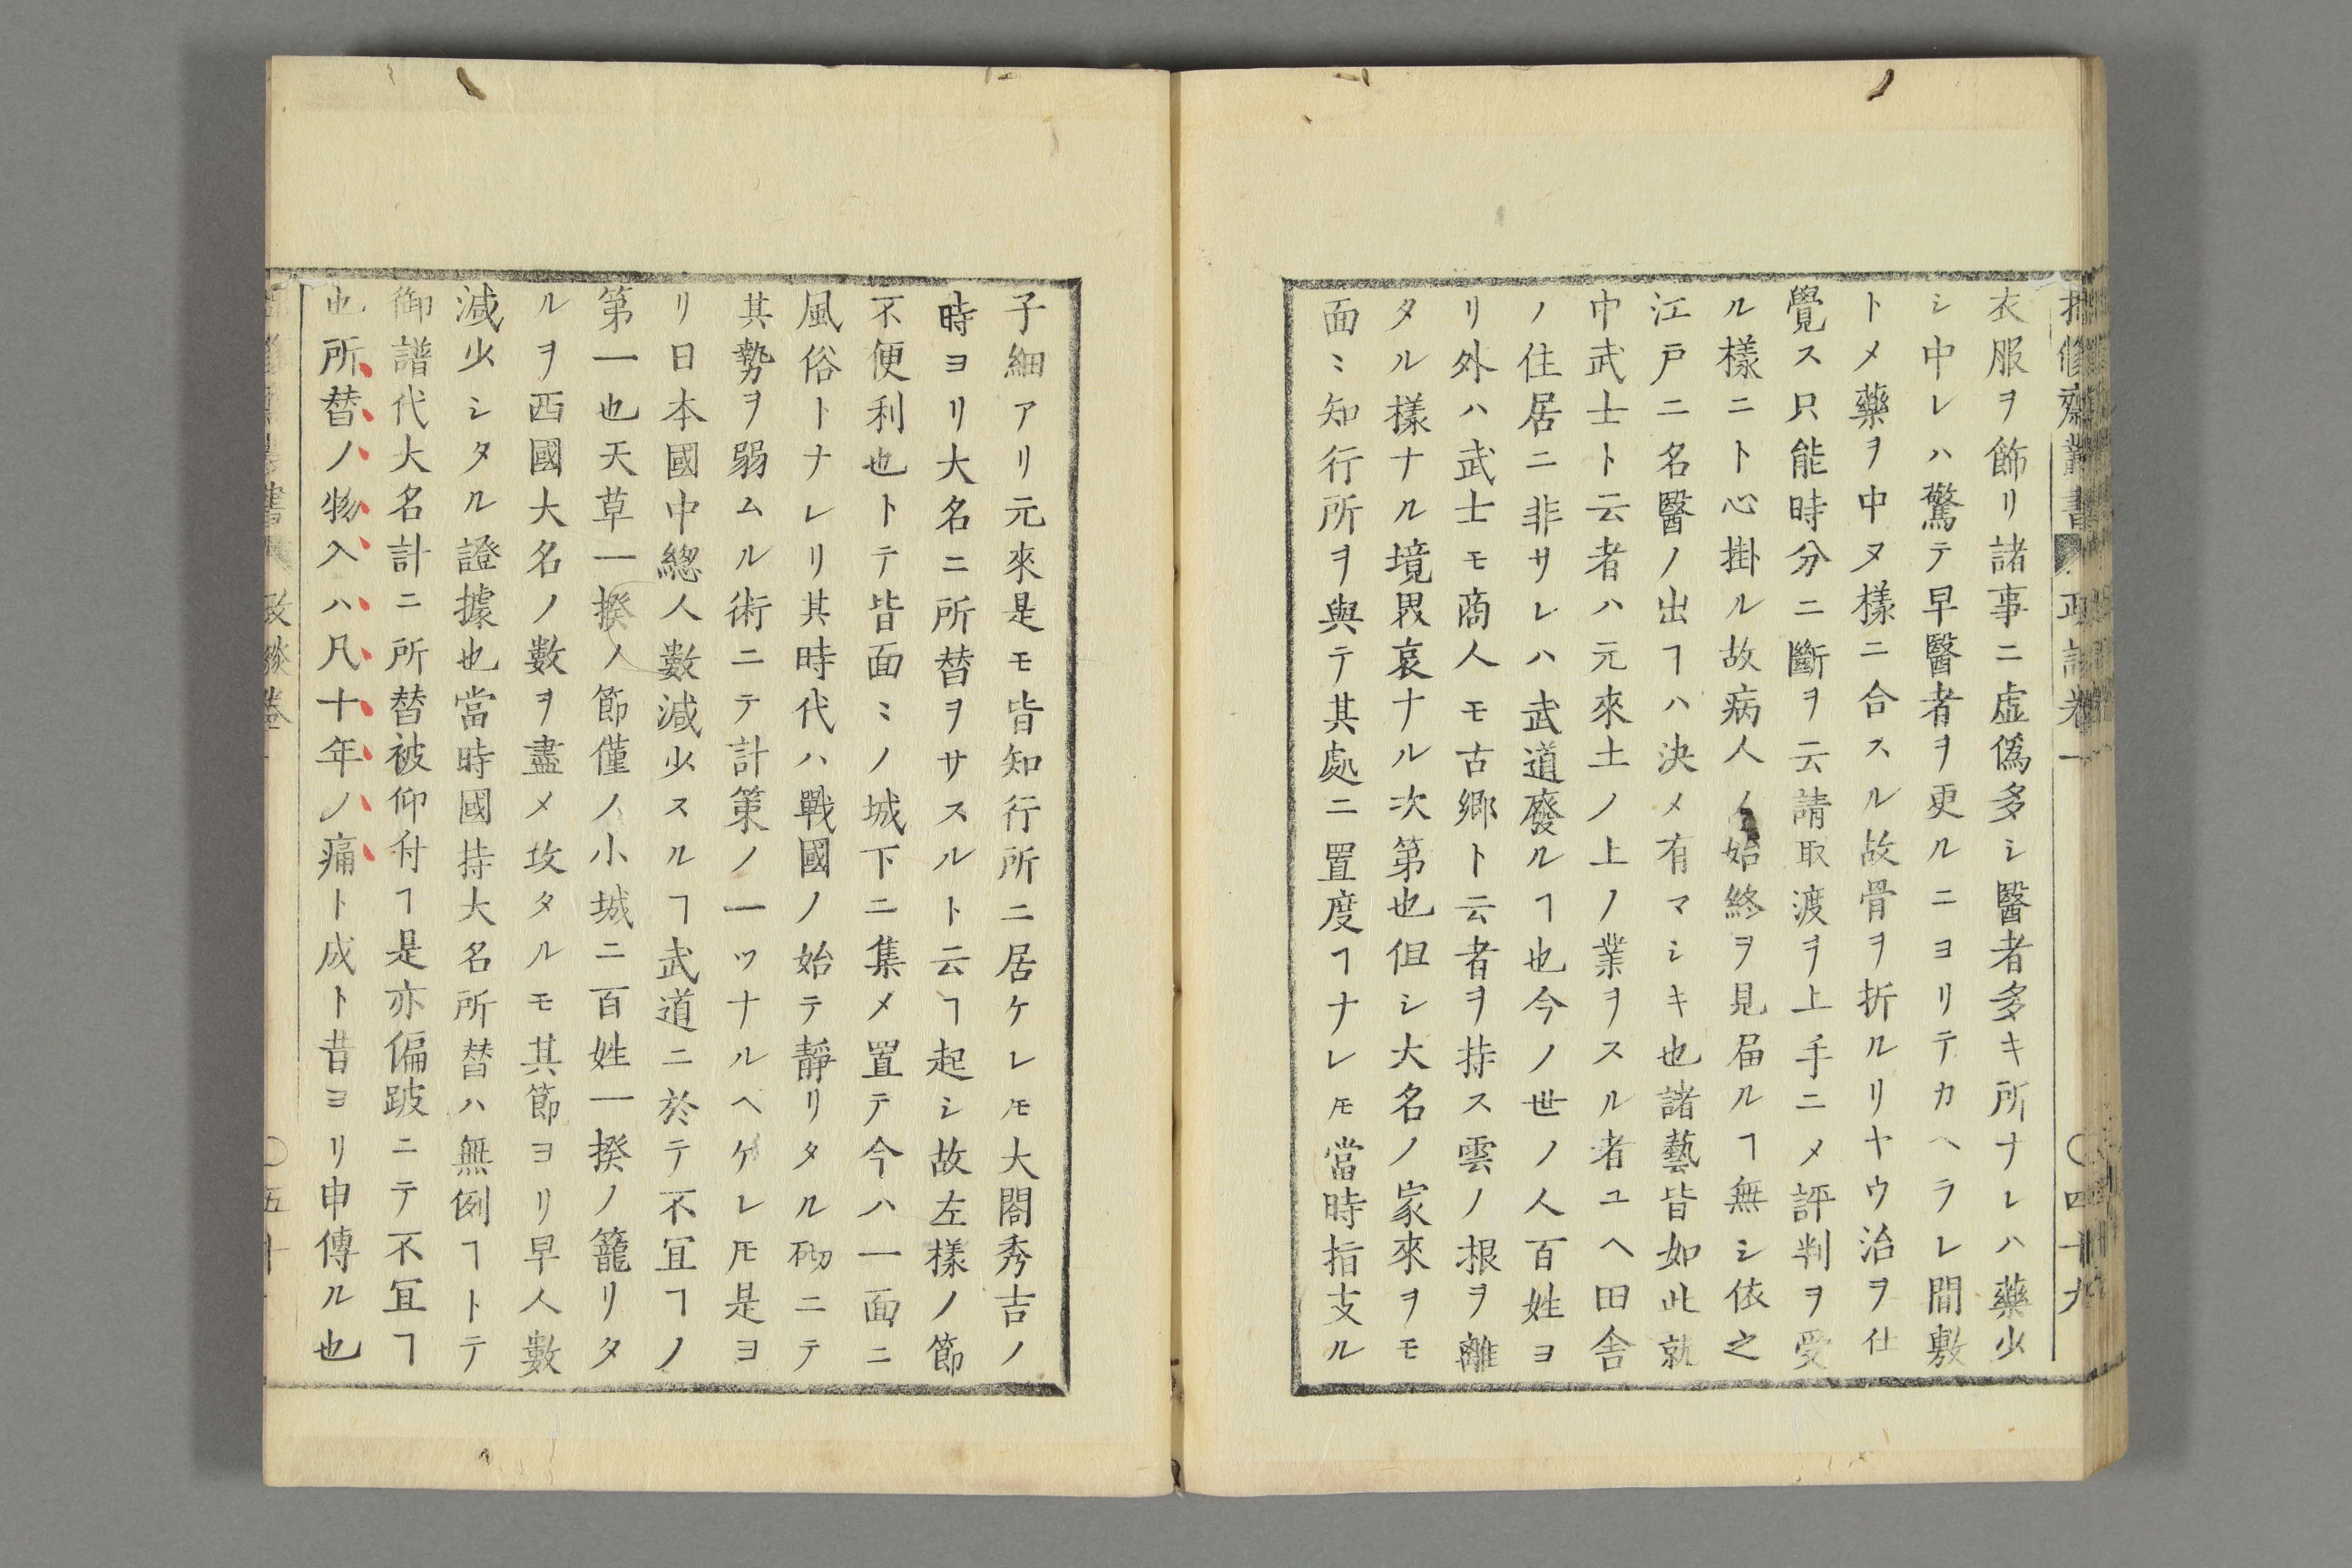 衣服ヲ飾リ諸事ニ虚僞多シ醫者多キ所ナレハ藥少
シ中レハ驚テ早醫者ヲ更ルニヨリテカヘラレ間敷
トメ藥ヲ中ヌ樣ニ合スル故骨ヲ折ルリヤウ治ヲ仕
覺ス只能時分ニ斷ヲ云請取渡ヲ上手ニメ評判ヲ受
ル樣ニト心掛ル故病人ノ始終ヲ見届ルヿ無シ依之
江戸ニ名醫ノ出ヿハ決メ有マシキ也諸藝皆如此就
中武士ト云者ハ元來土ノ上ノ業ヲスル者ユヘ田舎
ノ住居ニ非サレハ武道廢ルヿ也今ノ世ノ人百姓ヨ
リ外ハ武士モ商人モ古郷ト云者ヲ持ス雲ノ根ヲ離
タル樣ナル境界哀ナル次第也但シ大名ノ家來ヲモ
面〻知行所ヲ與テ其處ニ置度ヿナレ𪜈當時指支ル
子細アリ元來是モ皆知行所ニ居ケレ𪜈大閤秀吉ノ
時ヨリ大名ニ所替ヲサスルト云ヿ起シ故左樣ノ節
不便利也トテ皆面〻ノ城下ニ集メ置テ今ハ一面ニ
風俗トナレリ其時代ハ戰國ノ始テ靜リタル砌ニテ
其勢ヲ弱ムル術ニテ計策ノ一ツナルヘケレ𪜈是ヨ
リ日本國中緫人數減少スルヿ武道ニ於テ不宜ヿノ
第一也天草一揆ノ節僅ノ小城ニ百姓一揆ノ籠リタ
ルヲ西國大名ノ數ヲ盡メ攻タルモ其節ヨリ早人數
減少シタル證據也當時國持大名所替ハ無例ヿトテ
御譜代大名計ニ所替被仰付ヿ是亦偏跛ニテ不宜ヿ
也所替ノ物入ハ凡十年ノ痛ト成ト昔ヨリ申傳ル也